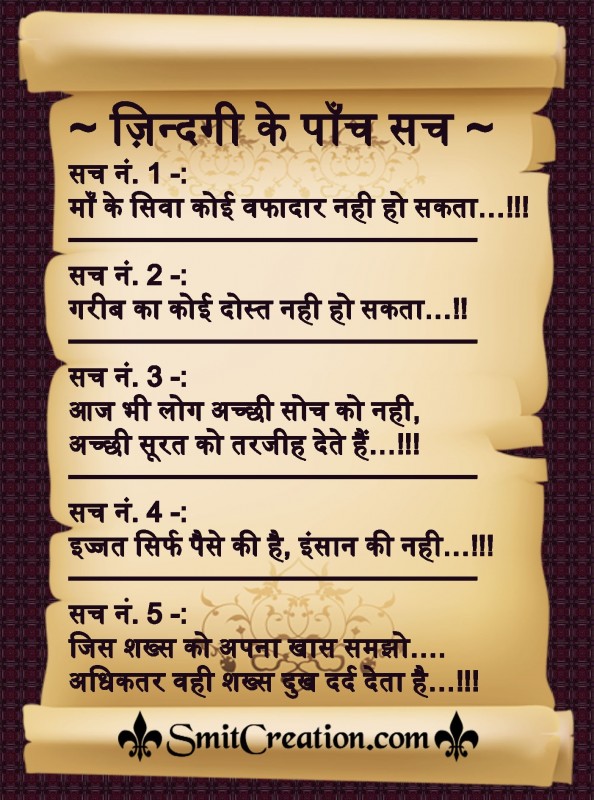 ~ ज़िन्दगी के पाँच सच ~
सच नं. 1 -:
माँ के सिवा कोई वफादार नही हो सकता...!!!
सच नं. 2 -:
गरीब का कोई दोस्त नही हो सकता...!!
सच नं. 3 -:
आज भी लोग अच्छी सोच को नही,
अच्छी सूरत को तरजीह देते हैं...!!!
सच नं. 4 -:
इज्जत सिर्फ पैसे की है, इंसान की नही...!!!
सच नं. 5 -:
जिस शख्स को अपना खास समझो....
अधिकतर वही शख्स दुख दर्द देता है...!!!
SmitCreation.com